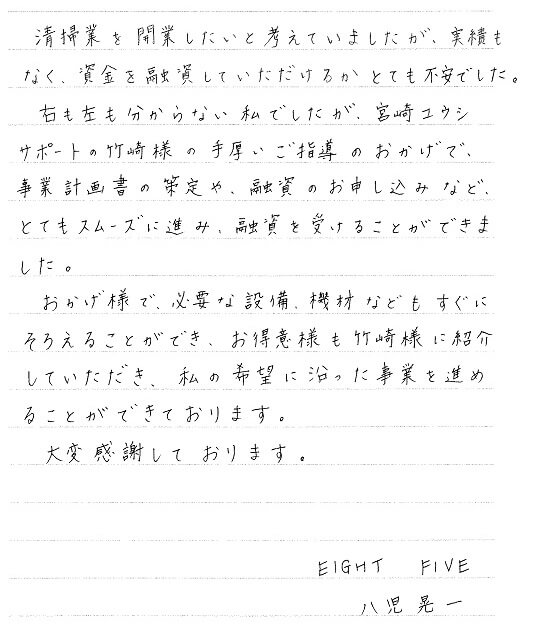 清掃業を開業したいと考えていましたが、実績も
なく、資金を融資していただけるかとても不安でした。
右も左も分からない私でしたが、宮崎ユウシ
サポートの竹崎様の手厚いご指導のおかげで、
事業計画書の策定や、融資のお申し込みなど、
とてもスムーズに進み、融資を受けることができま
した。
おかげ様で、必要な設備、機材などもすぐに
そろえることができ、お得意様も竹崎様に紹介
していただき、私の希望に沿った事業を進め
ることができております。
大変感謝しております。
EIGHT FIVE
八児晃一